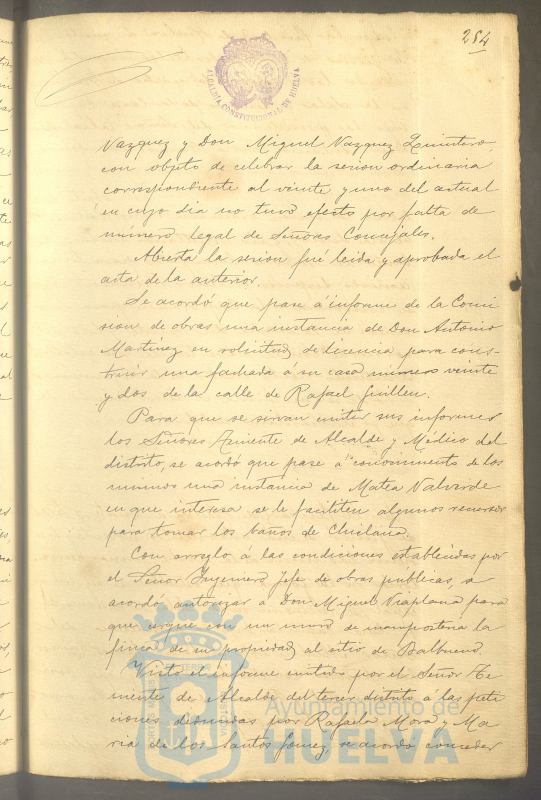 254
ALCALDÍA CONSTITUCIONAL DE HUELVA
Vazquez y Don Miguel Vazquez Quintero
con objeto de celebrar la sesion ordinaria
correspondiente al veinte y uno del actual
en cuyo dia no tuvo efecto por falta de
número legal de Señores Concejales.
Abierta la sesion fué leida y aprobada el
acta de la anterior.
Se acordó que pase á informe de la Comi
sion de obras una instancia de Don Antonio
Martinez en solicitud de licencia para cons-
truir una fachada á su casa número veinte
y dos de la calle de Rafael Guillen.
Para que se sirvan emitir sus informes
los Señores Teniente de Alcalde y Médico del
distrito, se acordó que pase á conocimiento de los
mismos una instancia de Matea Valverde
en que interesa se le faciliten algunos recursos
para tomar los baños de Chiclana.
Con arreglo á las condiciones establecidas por
el Señor Ingeniero Jefe de obras públicas, se
acordó autorizar a Don Miguel Viaplana para
que cerque con un muro de mamposteria la
finca de su propiedad al sitio de Balbueno.
Visto el informe emitido por el Señor Te
niente de Alcalde del tercer distrito á las peti
ciones deducidas por Rafaela Mora y Ma
ria de los Santos Gomez, se acordó conceder
Ayuntamiento de
HUELVA